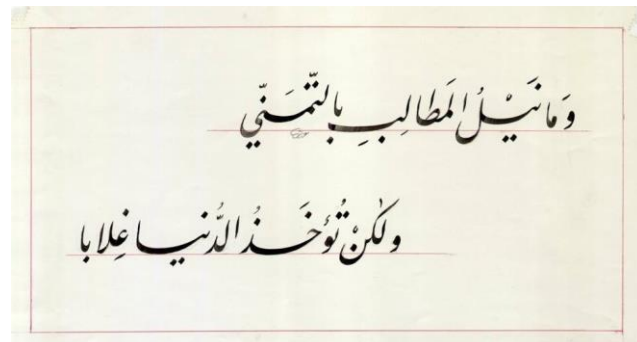 وَمَا نَيْلُ الْمَطَالِبِ بِالتَّمَنِّي
وَلٰكِنْ تُؤْخَذُ الدُّنيا غِلابا